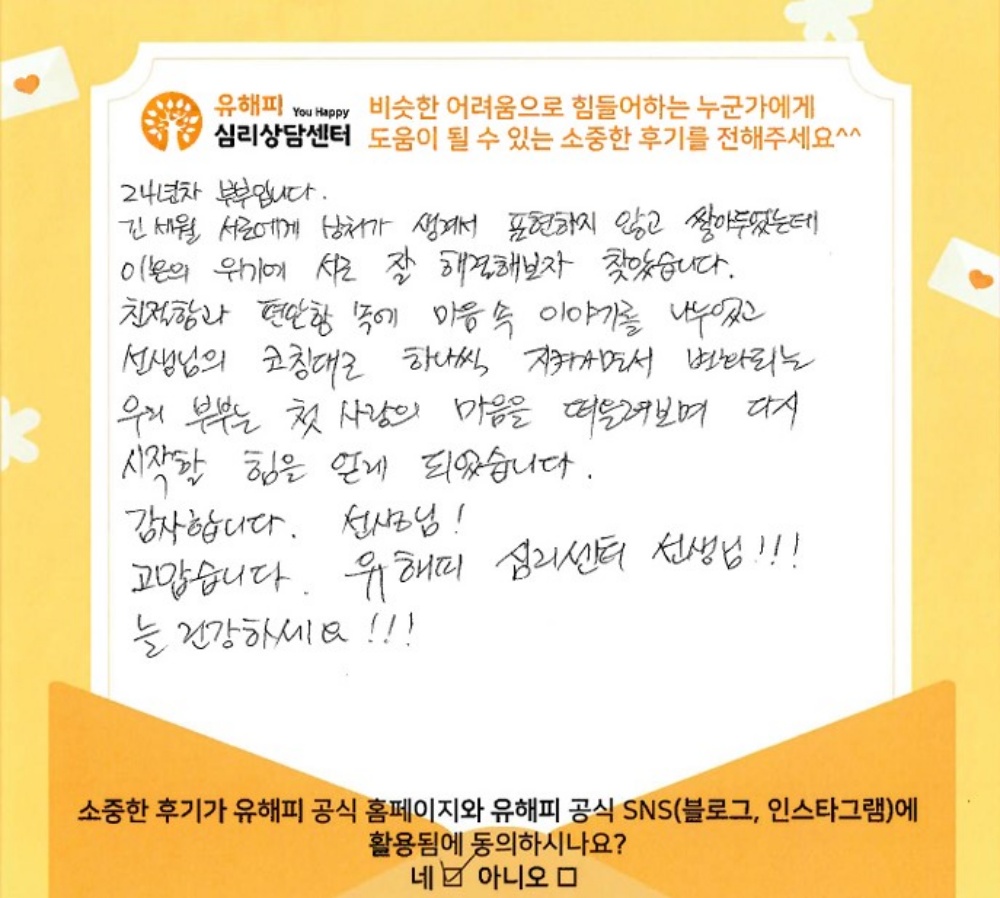 유해피 You Happy
심리상담센터
비슷한 어려움으로 힘들어하는 누군가에게
도움이 될 수 있는 소중한 후기를 전해주세요^^
24년차 부부입니다.
긴 세월 서로에게 상처가 생겨서 표현하지 않고 쌓아두었는데
이혼의 위기에 서로 잘 해결해보자 찾았습니다.
친절함과 편안함 속에 마음 속 이야기를 나누었고
선생님의 코칭대로 하나씩 지켜가면서 변화되는
우리 부부는 첫 사랑의 마음을 떠올려보며 다시
시작할 힘을 얻게 되었습니다.
감사합니다. 선생님!
고맙습니다. 유해피 심리센터 선생님!!!
늘 건강하세요!!!
소중한 후기가 유해피 공식 홈페이지와 유해피 공식 SNS(블로그, 인스타그램)에
활용됨에 동의하시나요?
네 ☑ 아니오 □